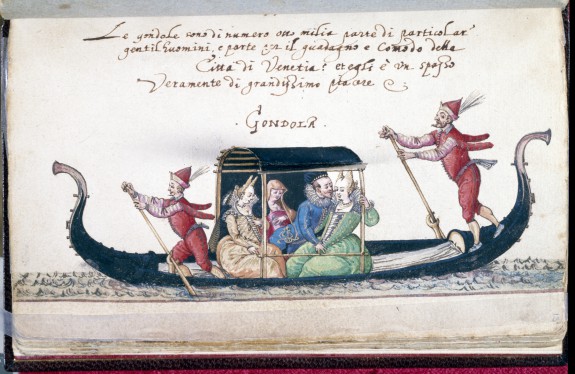 Le gondole sono di numero otto milia parte di particolar
gentilhuomini, e parte per il guadagno e Comodo della
Città di Venetia; et egli è un spasso
Veramente di grandissimo piacere
Gondola